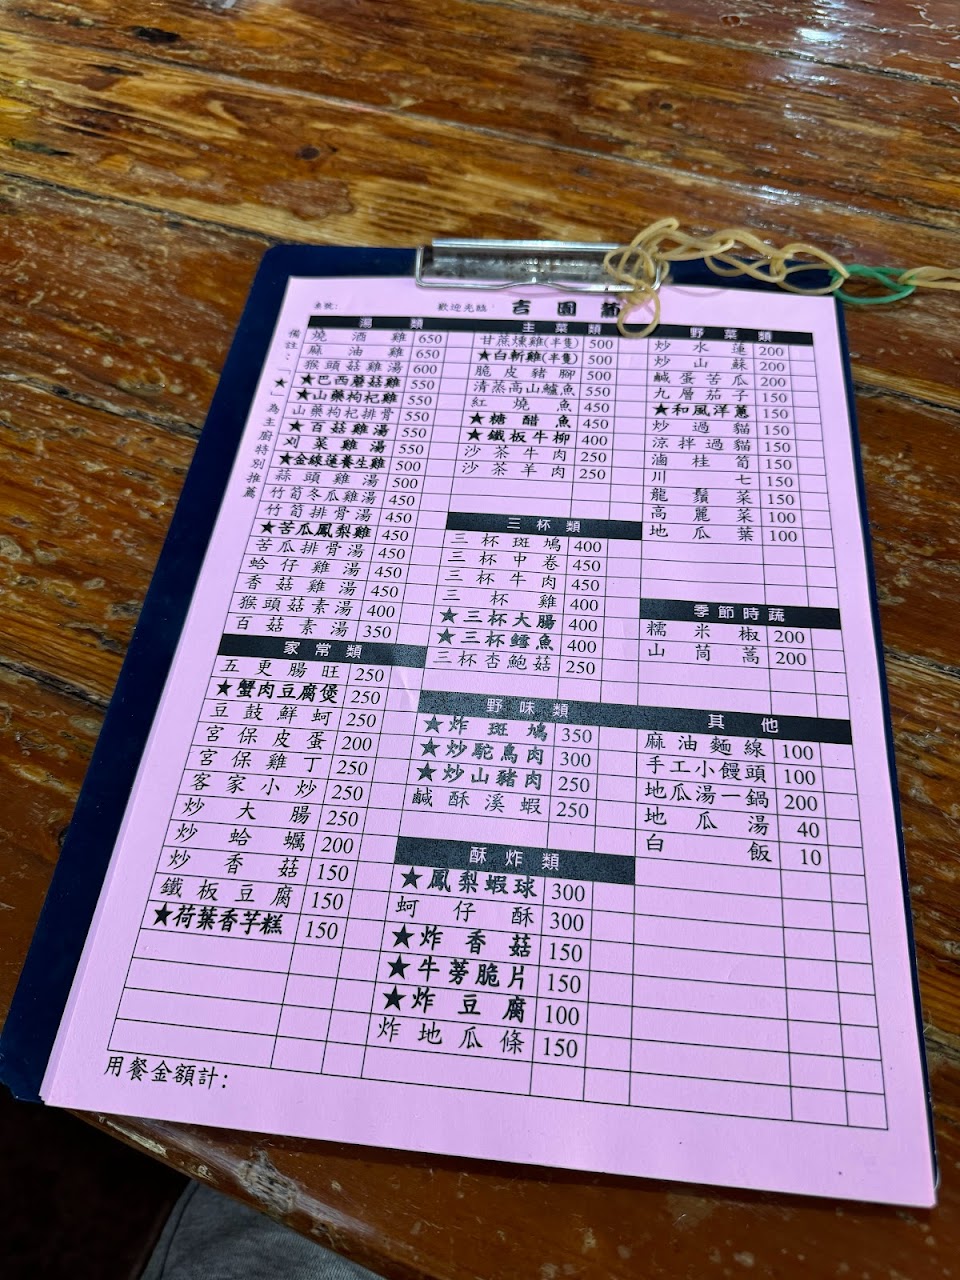 桌號:
歡迎光臨
吉園
備註:「★」為主廚特別推薦
湯類
燒酒雞 650
麻油雞 650
猴頭菇雞湯 600
★巴西蘑菇雞 550
★山藥枸杞雞 550
山藥枸杞排骨 550
★百菇雞湯 550
刈菜雞湯 550
★金線蓮養生雞 500
蒜頭雞湯 500
竹筍冬瓜雞湯 450
竹筍排骨湯 450
★苦瓜鳳梨雞 450
苦瓜排骨湯 450
蛤仔雞湯 450
香菇雞湯 450
猴頭菇素湯 400
百菇素湯 350
家常類
五更腸旺 250
★蟹肉豆腐煲 250
豆鼓鮮蚵 250
宮保皮蛋 200
宮保雞丁 250
客家小炒 250
炒大腸 250
炒蛤蠣 200
炒香菇 150
鐵板豆腐 150
★荷葉香芋糕 150
主菜類
甘蔗燻雞(半隻) 500
★白斬雞(半隻) 500
脆皮豬腳 500
清蒸高山鱸魚 550
紅燒魚 450
★糖醋魚 450
★鐵板牛柳 400
沙茶牛肉 250
沙茶羊肉 250
三杯類
三杯斑鳩 400
三杯中卷 450
三杯牛肉 450
三杯雞 400
★三杯大腸 400
★三杯鱈魚 400
三杯杏鮑菇 250
野味類
★炸斑鳩 350
★炒駝鳥肉 300
★炒山豬肉 250
鹹酥溪蝦 250
酥炸類
★鳳梨蝦球 300
蚵仔酥 300
★炸香菇 150
★牛蒡脆片 150
★炸豆腐 100
炸地瓜條 150
野菜類
炒水蓮 200
炒山蘇 200
鹹蛋苦瓜 200
九層茄子 150
★和風洋蔥 150
炒過貓 150
涼拌過貓 150
滷桂筍 150
川七 150
龍鬚菜 150
高麗菜 100
地瓜葉 100
季節時蔬
糯米椒 200
山茼蒿 200
其他
麻油麵線 100
手工小饅頭 100
地瓜湯一鍋 200
地瓜湯 40
白飯 10
用餐金額計: